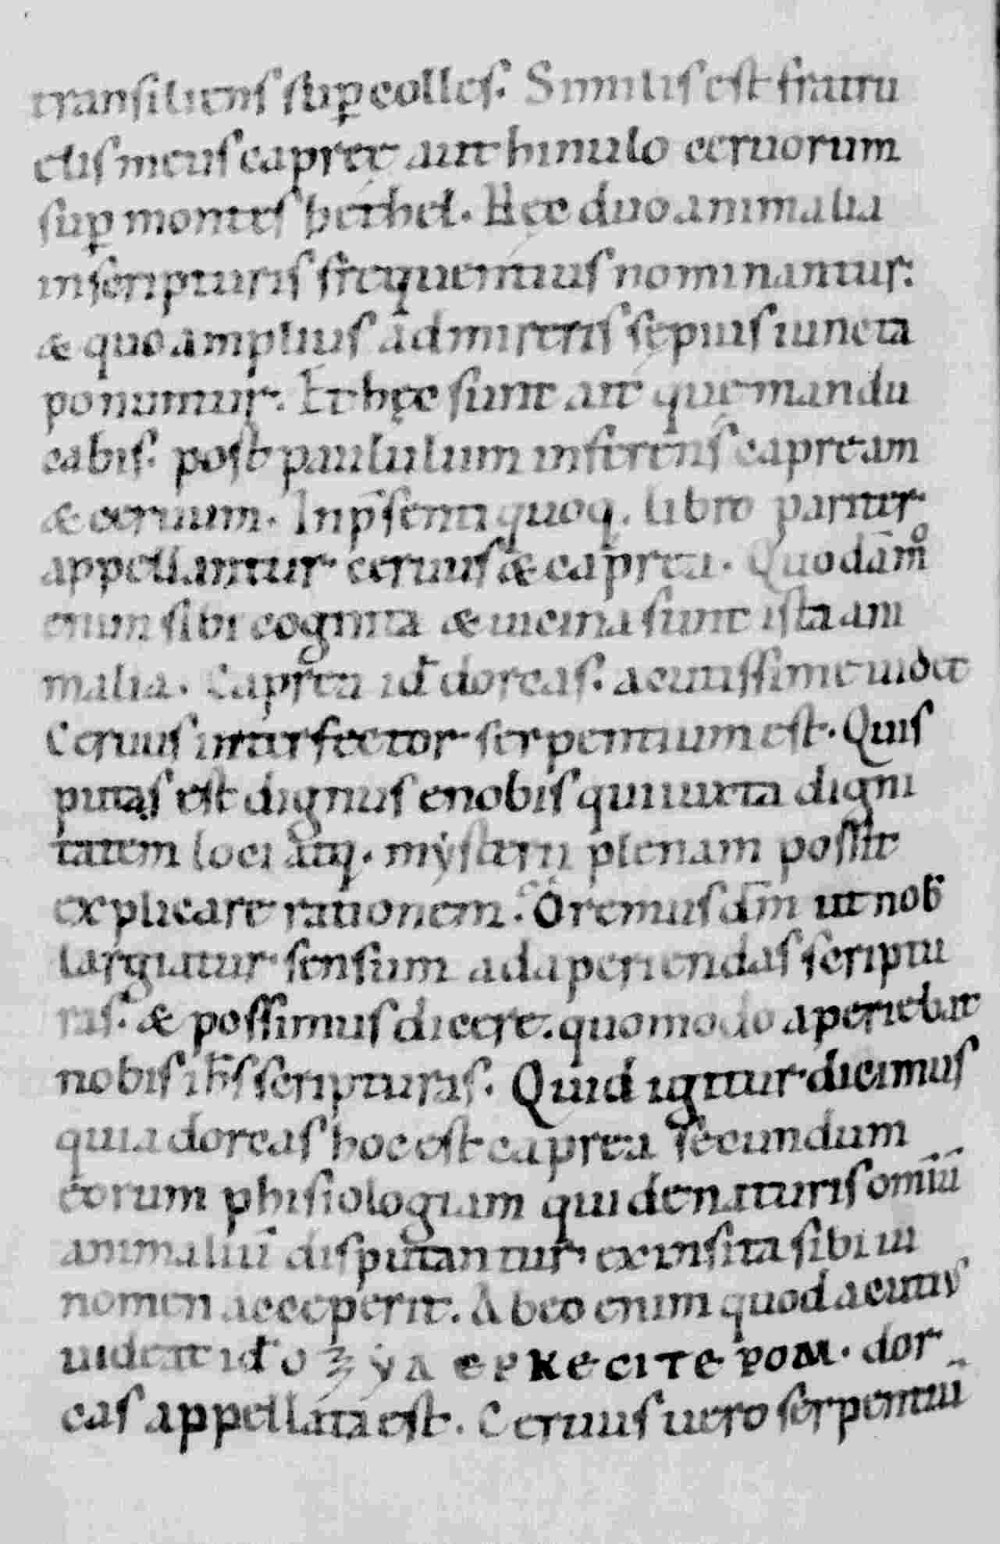 transiliens sup̱ colles. Similis est fratru
elis meus capreę aut hinulo ceruorum
sup̱ montes bethel. Hęc duo animalia
in scripturis frequentius nominantur.
& quo amplius admireris sępius iuncta
ponuntur. Et hęc sunt ait quę mandu
cabis. post paululum inferens capream
& ceruum. In p̄senti quoq. libro pariter
appellantur ceruus & caprea. Quodāmº
enim sibi cognita & uicina sunt ista ani
malia. Caprea id̄ dorcas. acutissime uidet
Ceruus interfector serpentium est. Quis
putas est dignus e nobis qui iuxta digni
tatem loci atq. mẏsterii plenam possit
explicare rationem. Oremus dm̄ ut nob̄
largiatur sensum ad aperiendas scriptu
ras. & possimus dicere. quomodo aperiebat
nobis ih̄s scripturas. Quid igitur dicimus
quia dorcas hoc est caprea secundum
eorum phisiologiam qui de naturis omiū
animaliū disputantur. ex insita sibi ui
nomen acceperit. Ab eo enim quod acutius
uideat id̄ oꝫẏa epkecite pom. dor
cas appellata est. Ceruus uero serpentiū